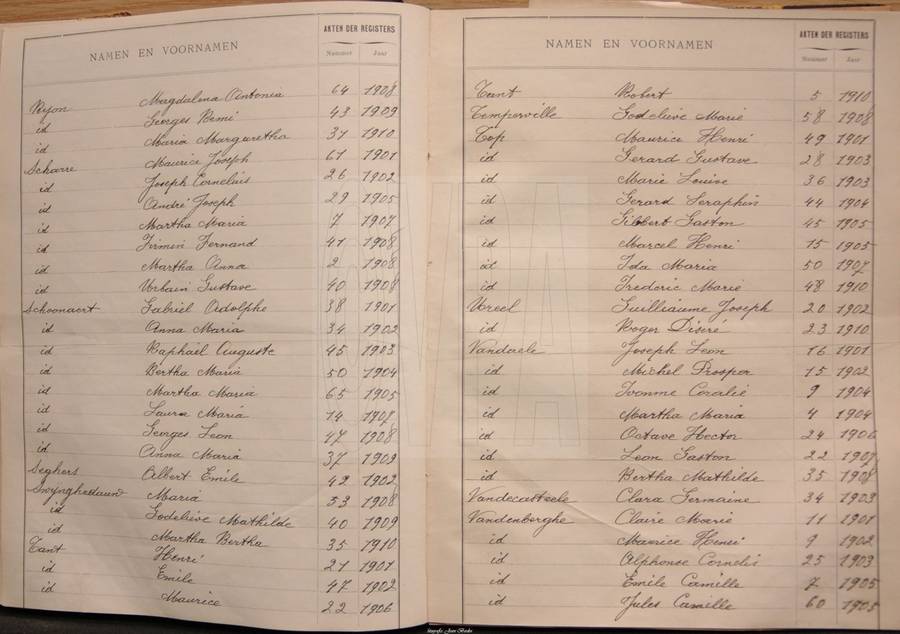 NAMEN EN VOORNAMEN AKTEN DER REGISTERS
Nummer Jaar
Ryon Magdalena Antonia 64 1908
id Georges Remi 43 1909
id Maria Margaretha 31 1910
Scharre Maurice Joseph 61 1901
id Joseph Cornelius 26 1902
id André Joseph 29 1905
id Martha Maria 7 1907
id Firmin Fernand 41 1908
id Martha Anna 2 1908
id Urbain Gustave 40 1908
Schoonaert Gabriel Adolphe 38 1901
id Anna Maria 34 1902
id Raphaël Auguste 45 1903
id Bertha Maria 50 1904
id Martha Maria 65 1905
id Laura Maria 14 1907
id Georges Leon 47 1908
id Anna Maria 37 1909
Seghers Albert Emile 42 1902
Swyngheduw Maria 53 1908
id Godelieve Mathilde 40 1909
id Martha Bertha 35 1910
Tant Henri 21 1901
id Emile 47 1902
id Maurice 22 1906
NAMEN EN VOORNAMEN AKTEN DER REGISTERS
Nummer Jaar
Tant Robert 5 1910
Temperville Godelieve Marie 58 1908
Top Maurice Henri 49 1901
id Gerard Gustave 28 1903
id Marie Louise 36 1903
id Gerard Seraphin 44 1904
id Gilbert Gaston 45 1905
id Marcel Henri 15 1905
id Ida Maria 50 1907
id Frederic Marie 48 1910
Ureel Guilliaume Joseph 20 1902
id Roger Désiré 23 1910
Vandaele Joseph Leon 16 1901
id Michel Prosper 15 1902
id Ivonne Coralie 9 1904
id Martha Maria 4 1904
id Octave Hector 24 1906
id Leon Gaston 22 1907
id Bertha Mathilde 35 1908
Vandecasteele Clara Germaine 34 1903
Vandenberghe Claire Marie 11 1901
id Maurice Henri 9 1902
id Alphonse Cornelis 25 1903
id Emile Camille 7 1905
id Jules Camille 60 1905